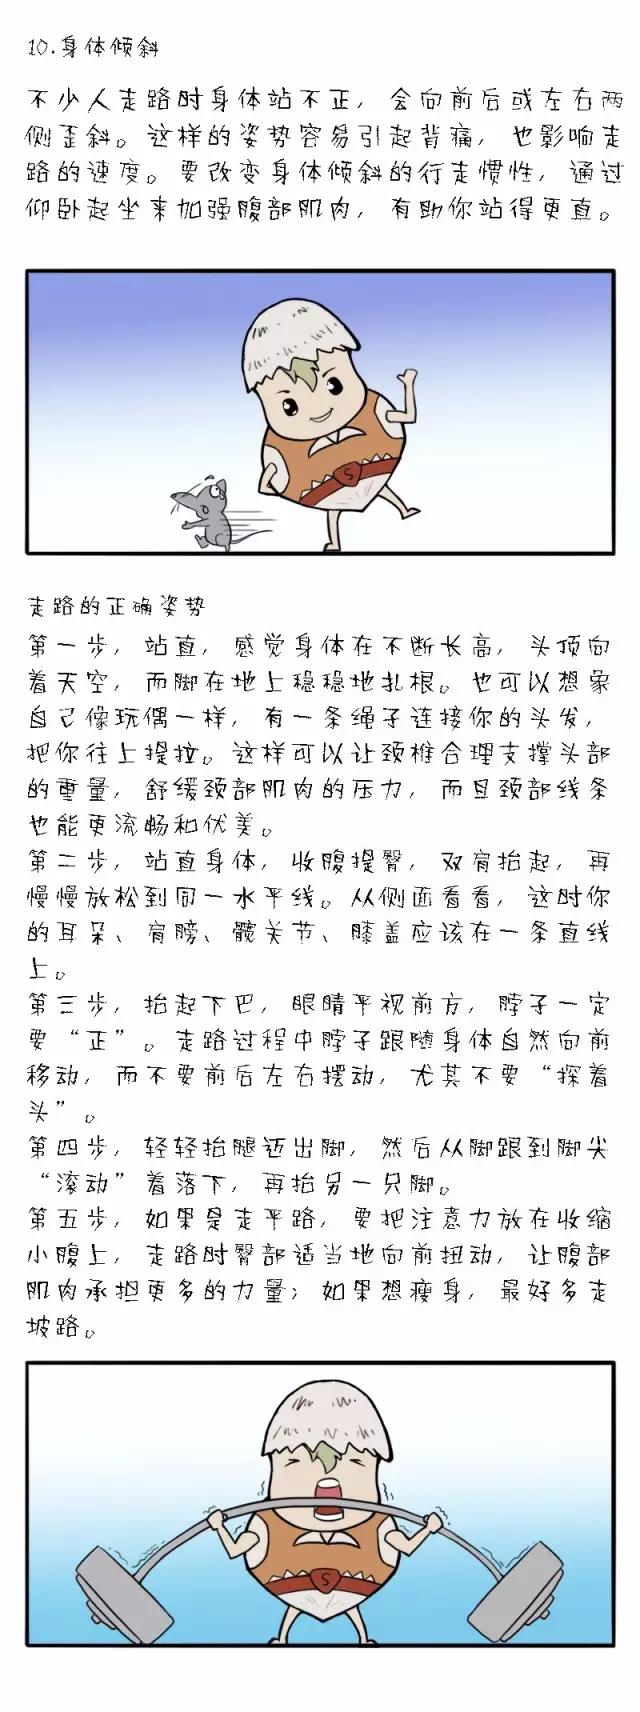 10.身体倾斜
不少人走路时身体站不正，会向前后或左右两
侧歪斜。这样的姿势容易引起背痛，也影响走
路的速度。要改变身体倾斜的行走惯性，通过
仰卧起坐来加强腹部肌肉，有助你站得更直。
S
走路的正确姿势
第一步，站直，感觉身体在不断长高，头顶向
着天空，而脚在地上稳稳地扎根。也可以想象
自己像玩偶一样，有一条绳子连接你的头发，
把你往上提拉。这样可以让颈椎合理支撑头部
的重量，舒缓颈部肌肉的压力，而且颈部线条
也能更流畅和优美。
第二步，站直身体，收腹提臀，双肩抬起，再
慢慢放松到同一水平线。从侧面看看，这时你
的耳朵、肩膀、髋关节、膝盖应该在一条直线
上。
第三步，抬起下巴，眼睛平视前方，脖子一定
要“正”。走路过程中脖子跟随身体自然向前
移动，而不要前后左右摆动，尤其不要“探着
头”。
第四步，轻轻抬腿迈出脚，然后从脚跟到脚尖
“滚动”着落下，再抬另一只脚。
第五步，如果是走平路，要把注意力放在收缩
小腹上，走路时臀部适当地向前扭动，让腹部
肌肉承担更多的力量；如果想瘦身，最好多走
坡路。
S